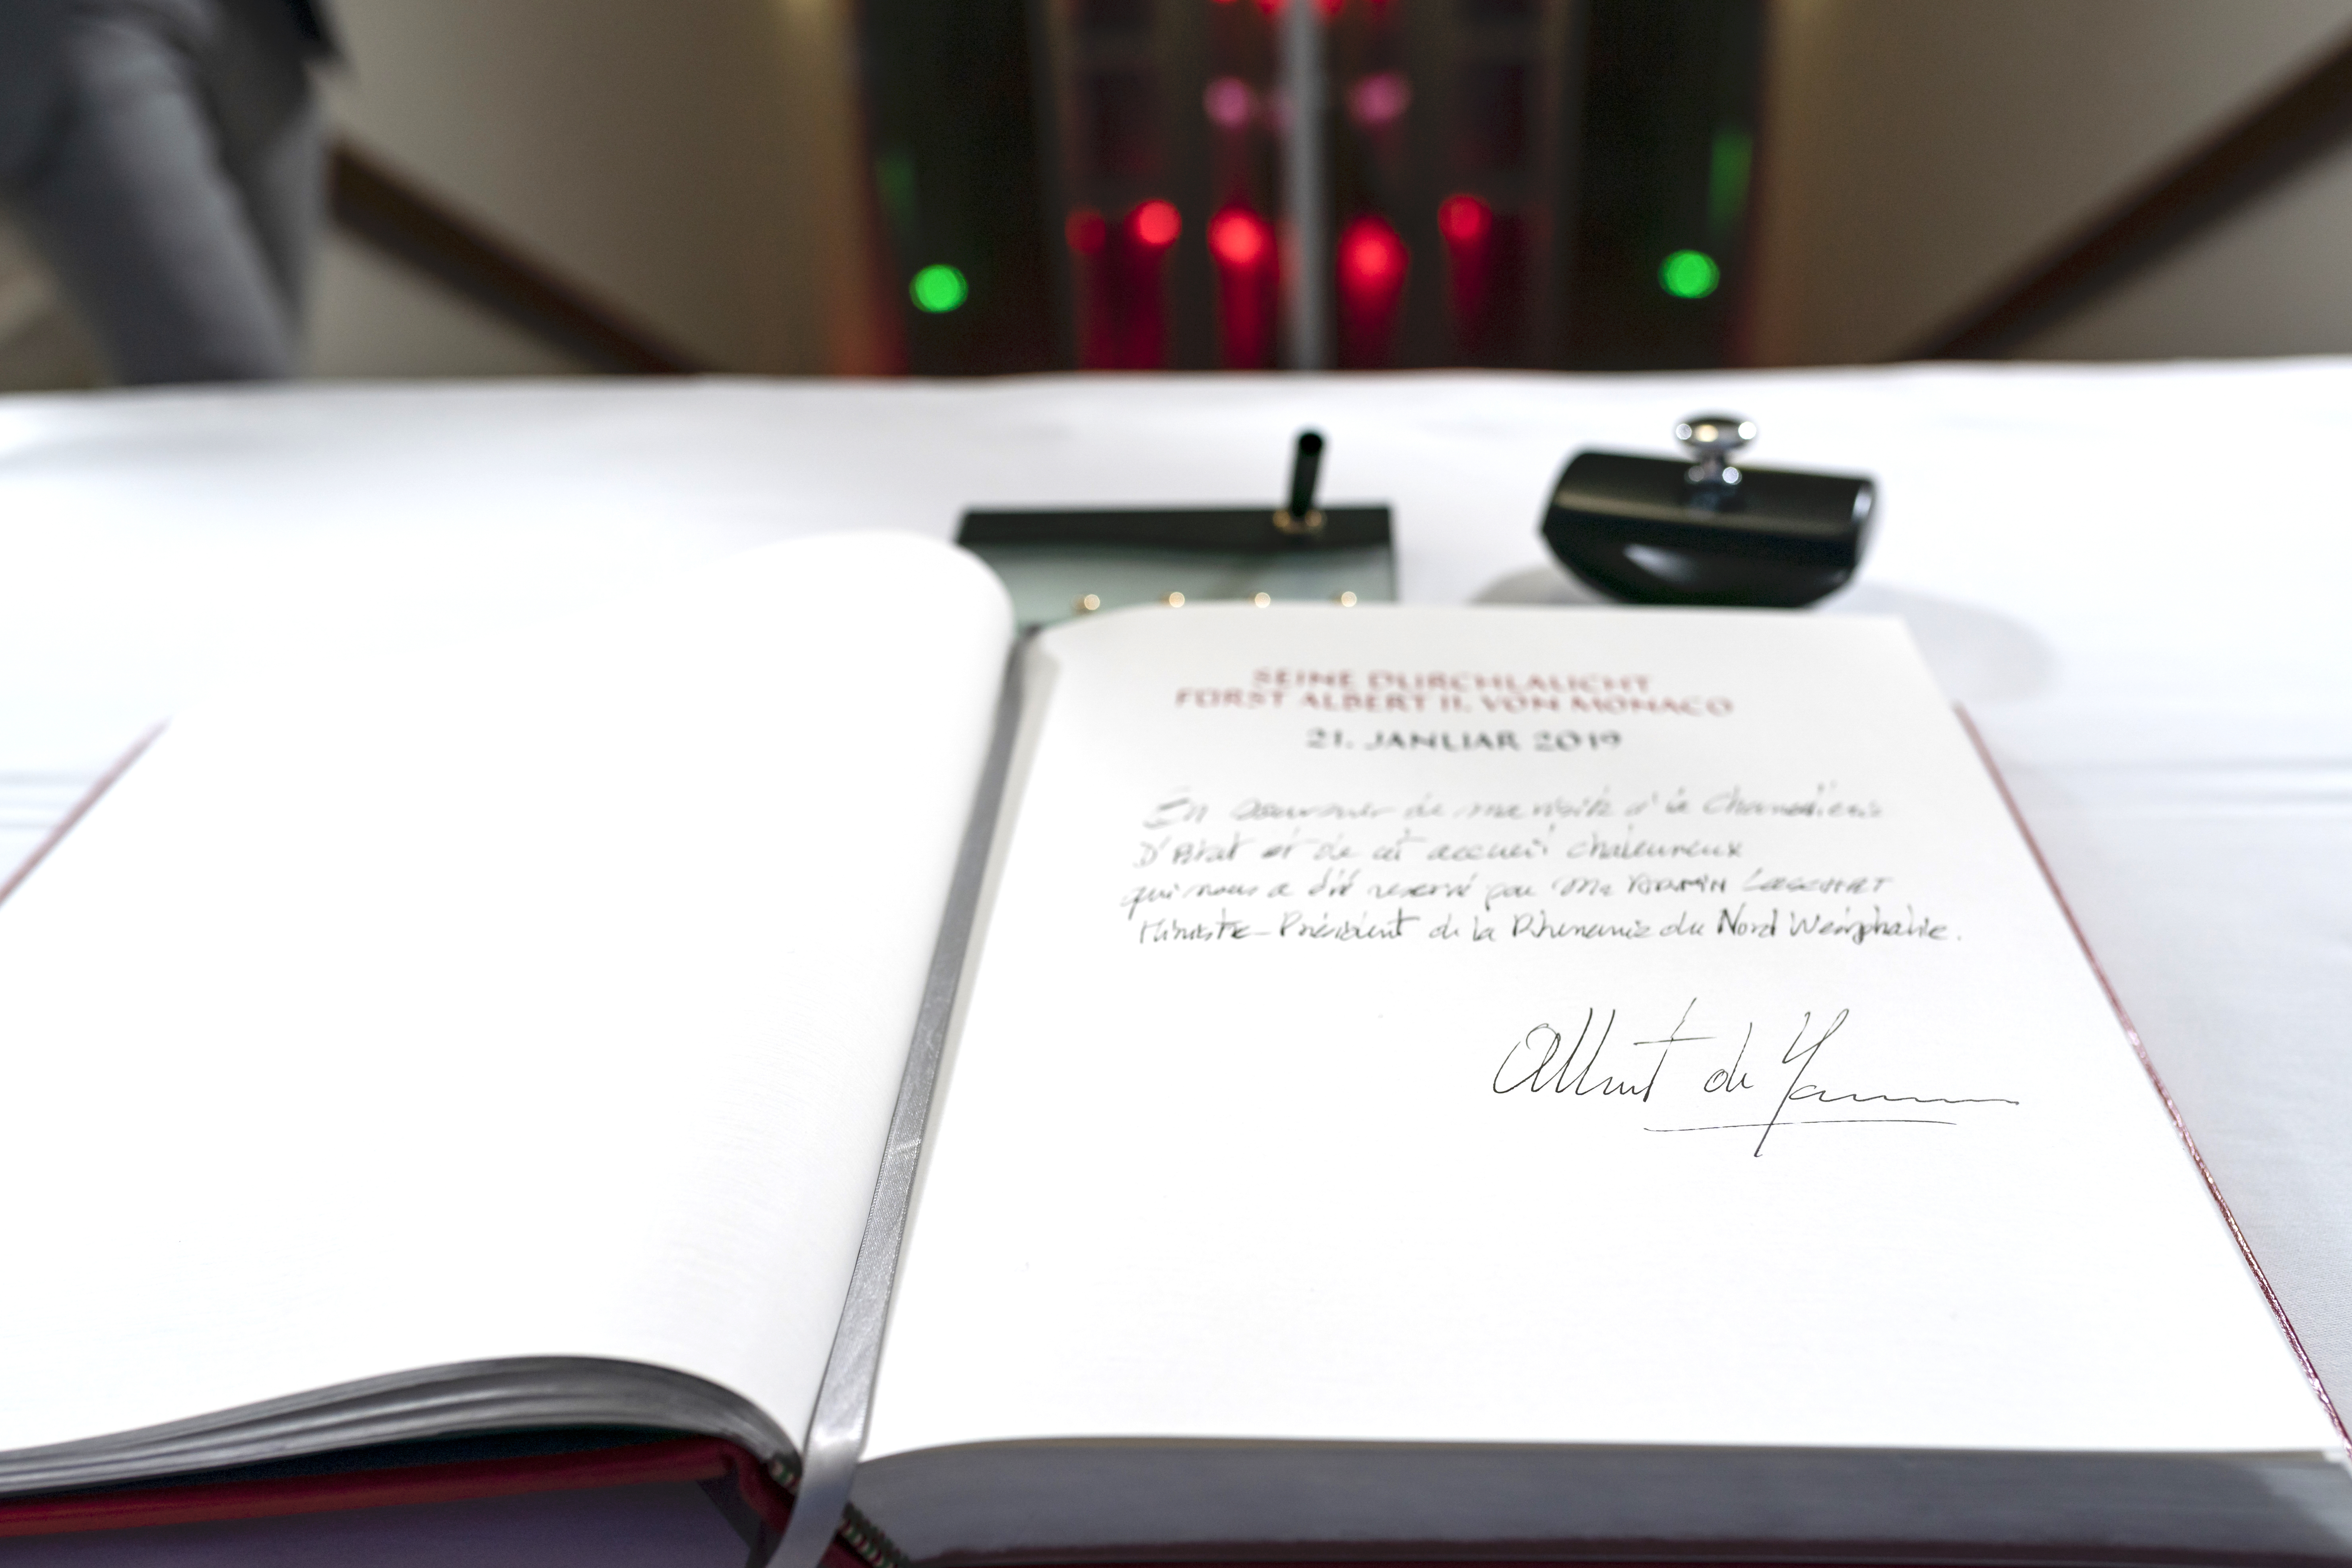 SEINE DURCHLAUCHT
FÜRST ALBERT II. VON MONACO
21. JANUAR 2019
En souvenir de ma visite à la Chancellerie
D'Etat et de cet accueil chaleureux
qui nous a été reservé par Mr ARMIN LASCHET
Ministre-Président de la Rhenanie du Nord Westphalie.
Albert de Monaco